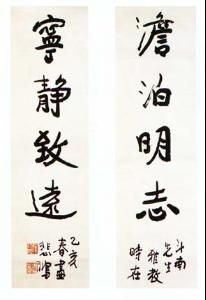 澹泊明志
斗南
先生
雅教
時在
寧靜致遠
乙亥
春盡
悲鴻